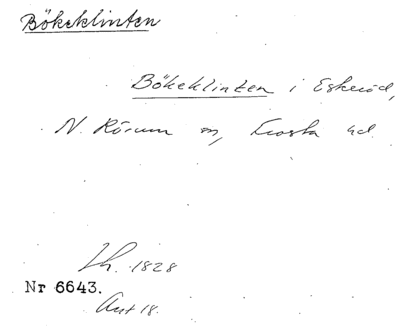 Bökeklinten
Bökeklinten i Eskeröd,
N. Rörum sn, Frosta hd.
Lh. 1828
Nr 6643.
Ant 18.